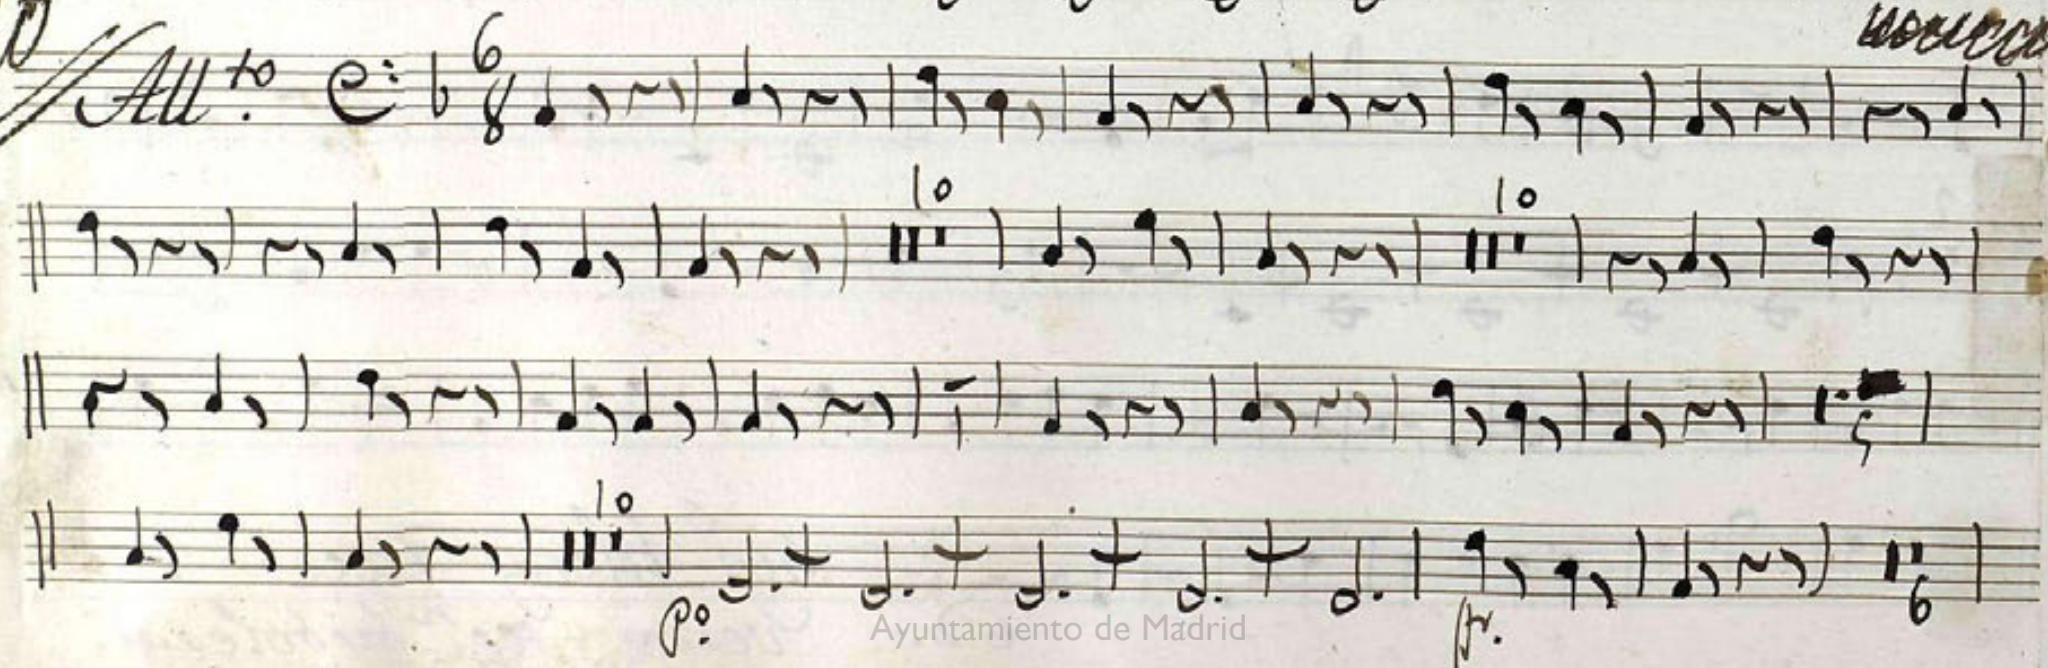 All.to 6 8
10 10
1 5
10
P.o fr. 6
Ayuntamiento de Madrid